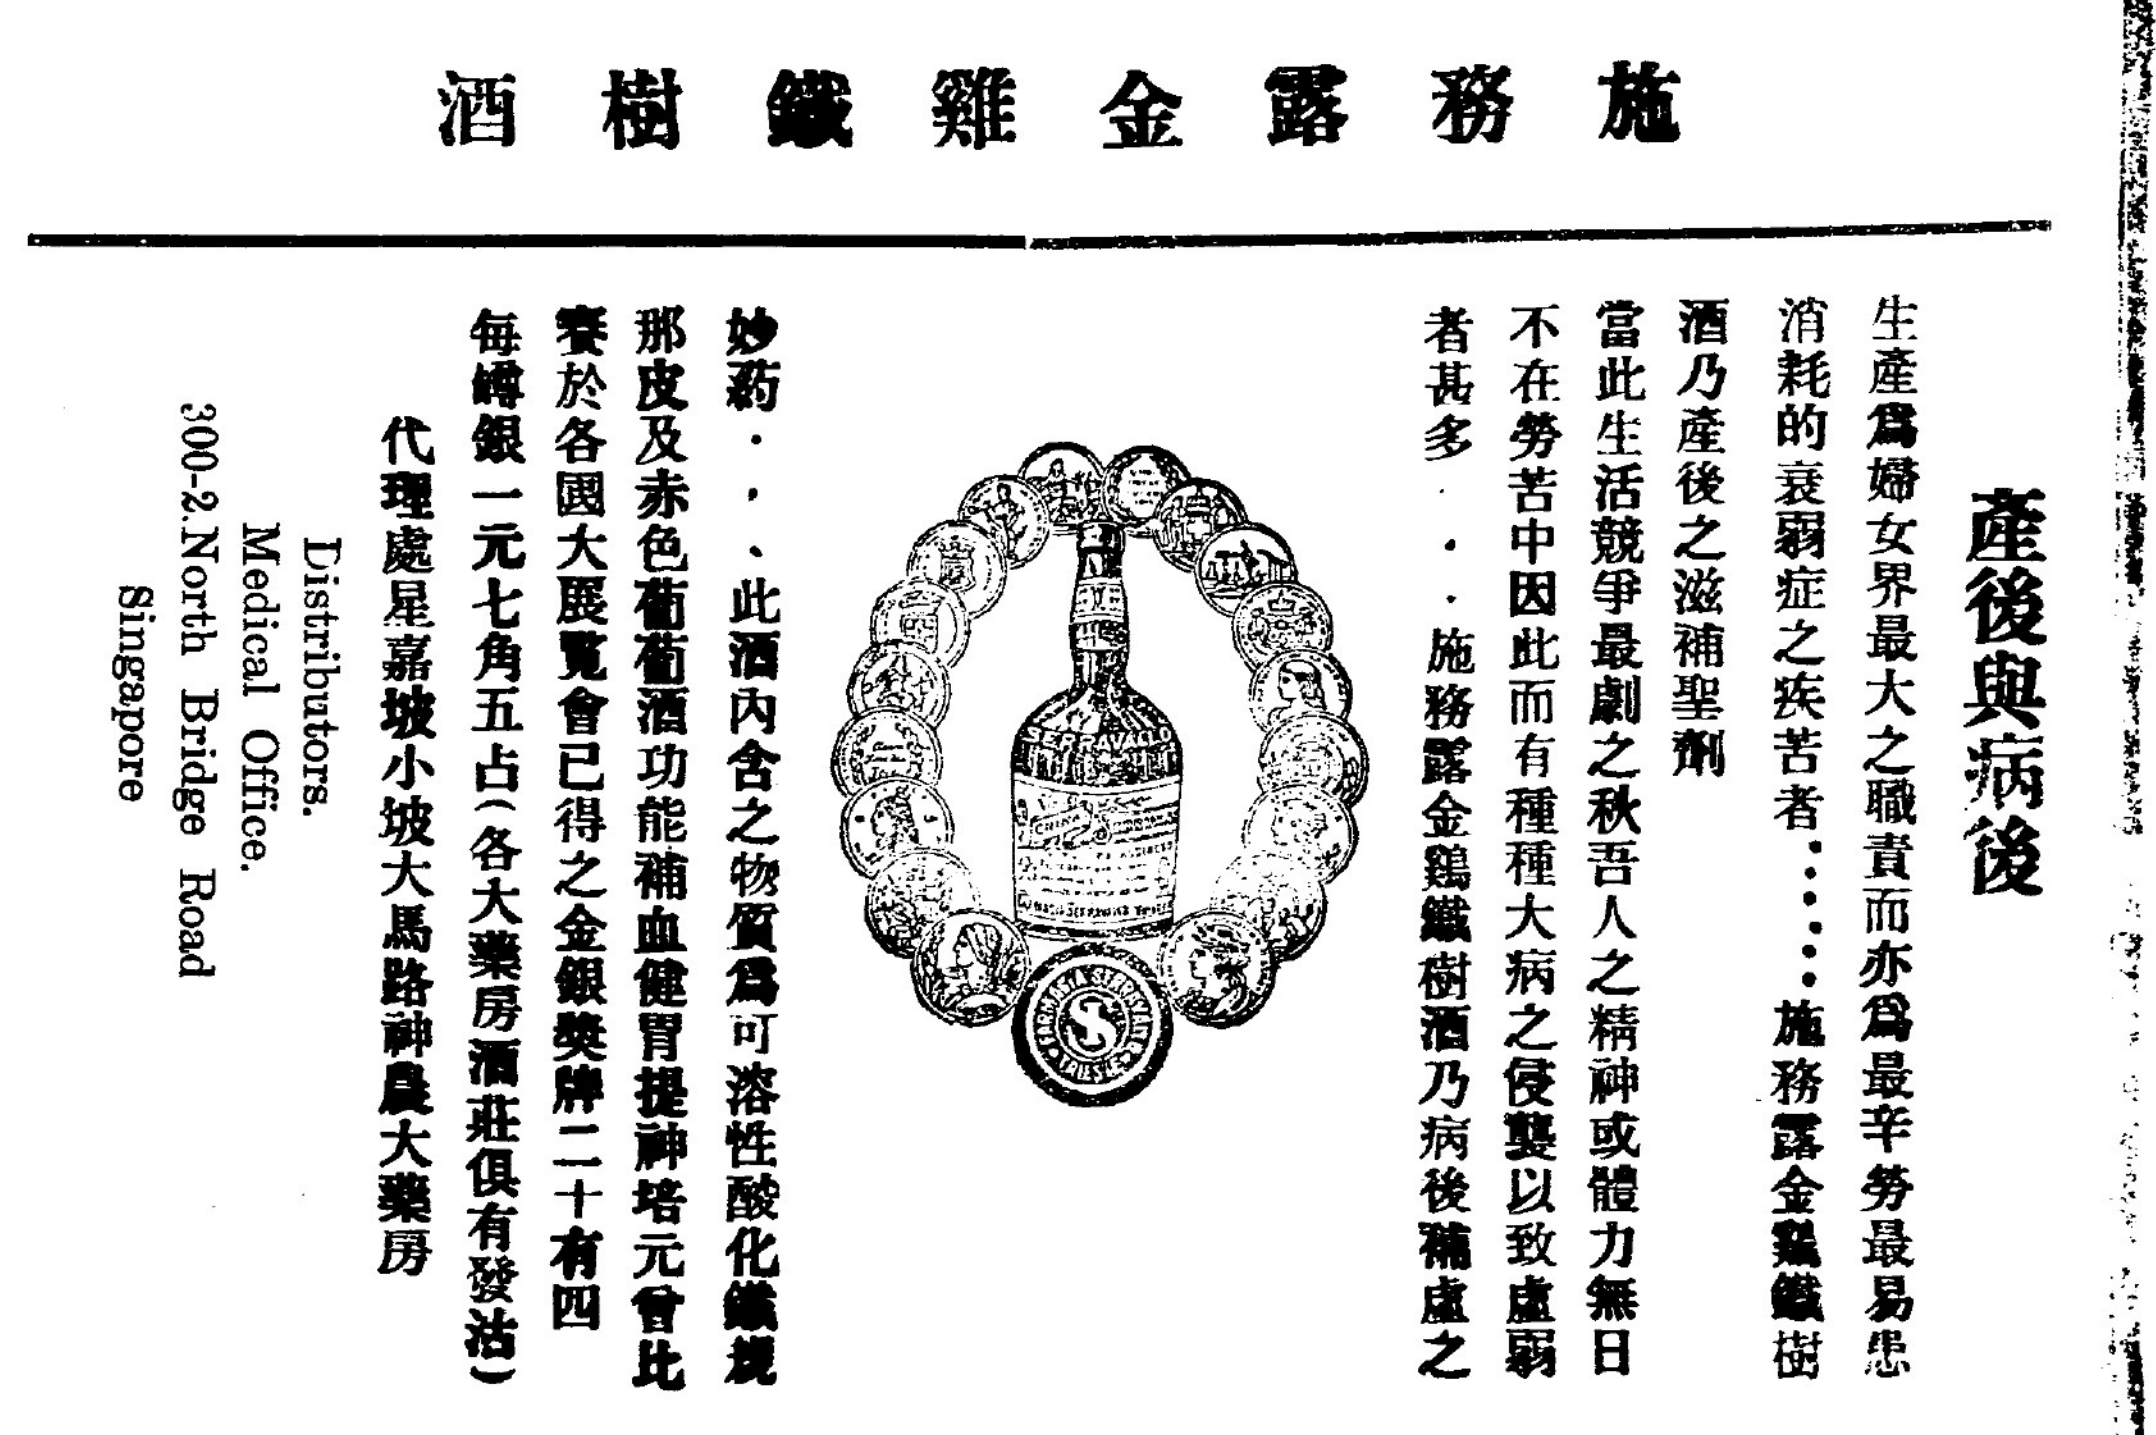 施務露金雞鐵樹酒
產後與病後
生產爲婦女界最大之職責而亦爲最辛勞最易患
消耗的衰弱症之疾苦者······施務露金鷄鐵樹
酒乃產後之滋補聖劑
當此生活競爭最劇之秋吾人之精神或體力無日
不在勞苦中因此而有種種大病之侵襲以致虛弱
者甚多····施務露金鷄鐵樹酒乃病後補虛之
妙葯·,,、此酒內含之物質爲可溶性酸化鐵規
那皮及赤色葡萄酒功能補血健胃提神培元曾比
賽於各國大展覽會已得之金銀獎牌二十有四
每罇銀一元七角五占(各大藥房酒莊俱有發沽)
代理處星嘉坡小坡大馬路神農大藥房
Distributors.
Medical Office.
300-2.North Bridge Road
Singapore
SERRAVALLO